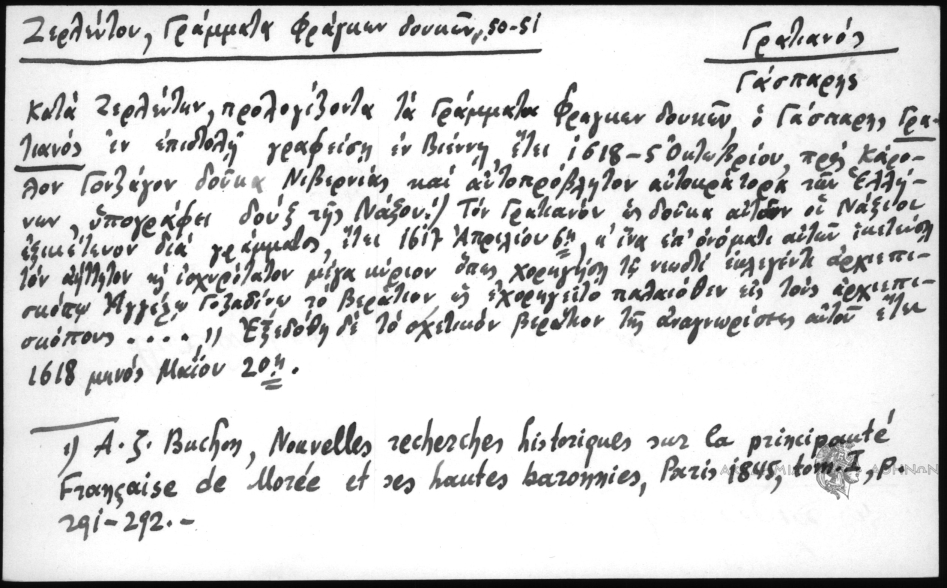 Ζερλέντου, Γράμματα Φράγκων δουκῶν, σ. 50-51
Γρατιανός
Γάσπαρης
Κατά Ζερλέντην, προλογίζοντα τά Γράμματα Φράγκων δουκῶν, ὁ Γάσπαρης Γρα-
τιανός "ἐν ἐπιστολῇ γραφείσῃ ἐν Βιέννῃ, ἔτει 1618-5 Ὀκτωβρίου, πρός Κάρο-
λον Γονζάγον δοῦκα Νιβερνίας καί αὐτοπρόβλητον αὐτοκράτορα τῶν Ἑλλή-
νων, ὑπογράφει δούξ τῆς Νάξου.¹) Τόν Γρατιανόν ὡς δοῦκα αὐτῶν οἱ Νάξιοι
ἐξικέτευον διά γράμματος, ἔτει 1617 Ἀπριλίου 6ῃ, ἵνα ἐπ' ὀνόματι αὐτῶν ἱκετεύσῃ
τόν ἀήττητον καί ἰσχυρότατον μέγα κύριον ὅπως χορηγήσῃ τῷ νεωστί ἐκλεγέντι ἀρχιεπι-
σκόπῳ Ἀγγέλῳ Γοζαδίνῳ τό βεράτιον ὡς ἐχορηγεῖτο παλαιόθεν εἰς τούς ἀρχιεπι-
σκόπους . . . . )) Ἐξεδόθη δέ τό σχετικόν βεράτιον τῆς ἀναγνωρίσεως αὐτοῦ ἔτει
1618 μηνός Μαΐου 20ῃ.
1) A. J. Buchon, Nouvelles recherches historiques sur la principauté
Française de Morée et ses hautes baronnies, Paris 1845, tom. I, p.
291-292.-
ΑΚΑΔΗΜΙΑ ΑΘΗΝΩΝ